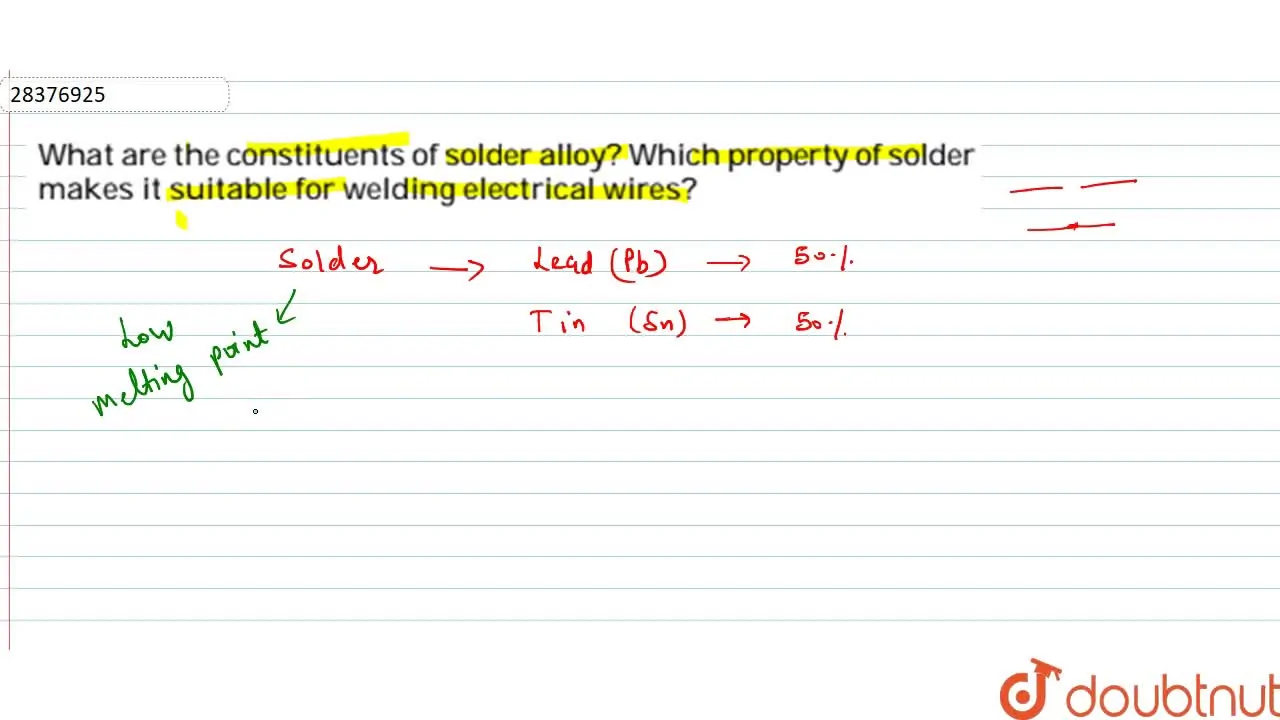 28376925
What are the constituents of solder alloy? Which property of solder
makes it suitable for welding electrical wires?
Solder → Lead (Pb) → 50%.
Tin (Sn) → 50%.
Low
melting point
doubtnut